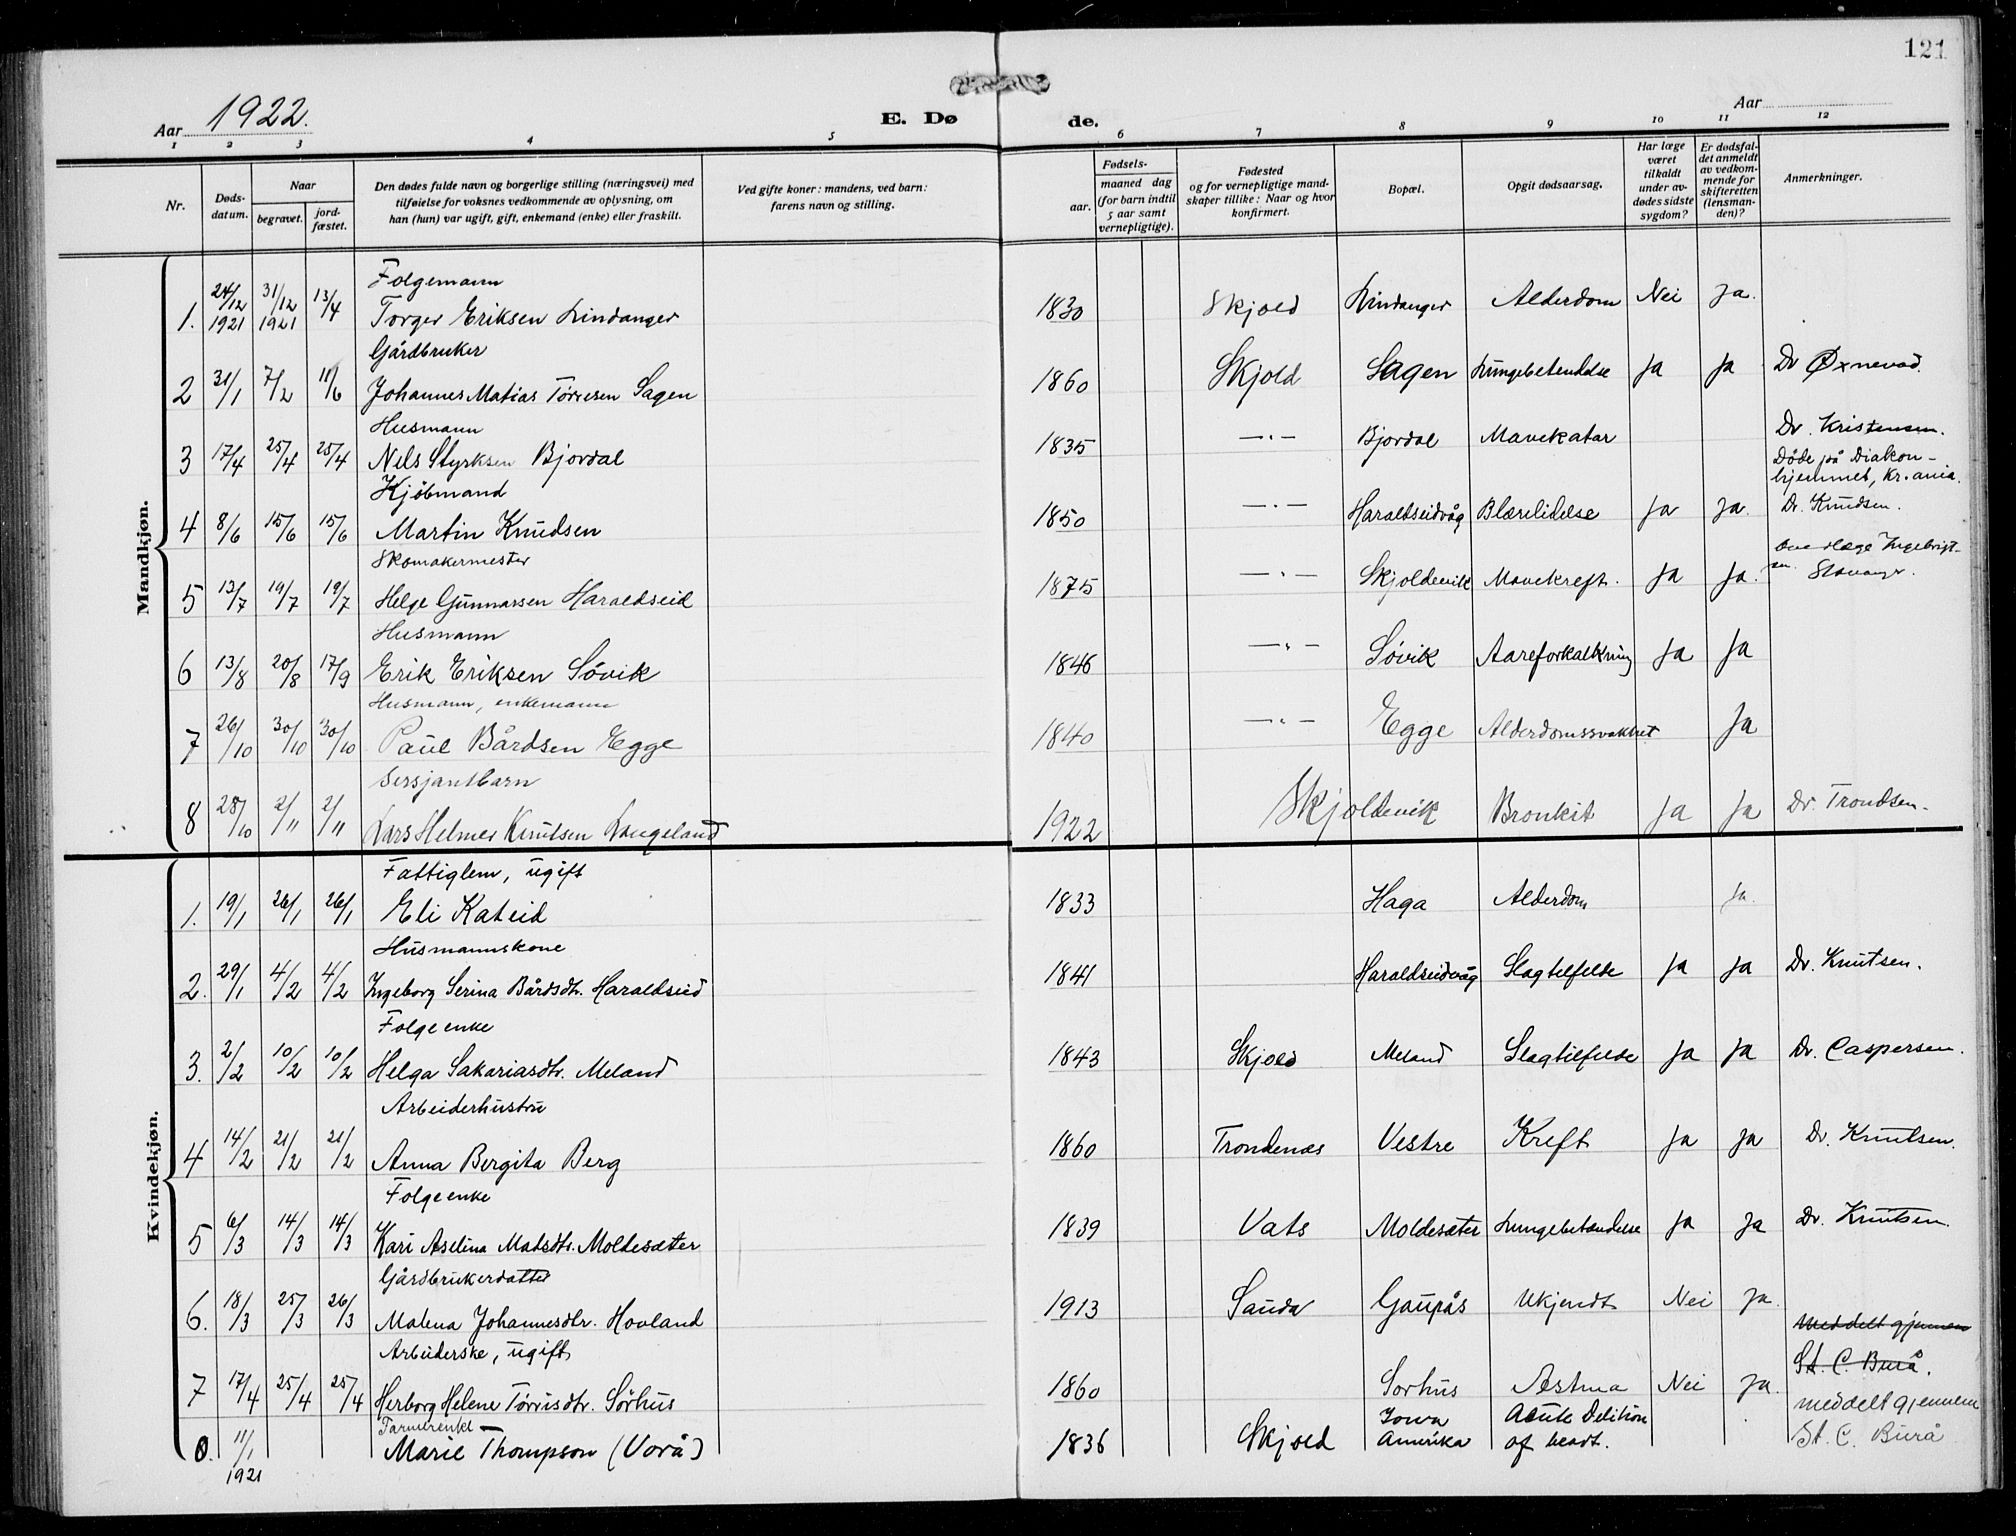 121
Aar 1922.
E. Døde.
Aar
1 2 3 4 5 6 7 8 9 10 11 12
Nr.
Døds-datum.
Naar
begravet.
jord-fæstet.
Den dødes fulde navn og borgerlige stilling (næringsvei) med
tilføielse for voksnes vedkommende av oplysning, om
han (hun) var ugift, gift, enkemand (enke) eller fraskilt.
Ved gifte koner: mandens, ved barn:
farens navn og stilling.
Fødsels-
aar.
maaned dag
(for barn indtil
5 aar samt
vernepligtige).
Fødested
og for vernepligtige mand-
skaper tillike: Naar og hvor
konfirmert.
Bopæl.
Opgit dødsaarsag.
Har læge
været
tilkaldt
under av-
dødes sidste
sygdom?
Er dødsfal-
det anmeldt
av vedkom-
mende for
skifteretten
(lensman-
den)?
Anmerkninger.
Mandkjøn.
Folgemann
1. 24/12 1921 31/12 1921 13/4 Torger Eriksen Lindanger 1830 Skjold Lindanger Alderdom Nei Ja.
Gårdbruker
2 31/1 7/2 11/6 Johannes Matias Tørresen Sagen 1860 Skjold Sagen Lungebetendelse Ja Ja Dr Øxnevad.
Husmann
3 17/4 25/4 25/4 Nels Styrksen Bjordal 1835 —"— Bjordal Mavekatar Dr. Kristensen.
Døde på Diakon-
hjemmet, Kr.ania.
Kjöbmand
4 8/6 15/6 15/6 Martin Knudsen 1850 —"— Haraldseidvåg Blærelidelse Ja Ja. Dr. Knudsen.
Skomakermester
5 13/7 19/7 19/7 Helge Gunnarsen Haraldseid 1875 —"— Skjoldevik Mavekreft. Ja Ja. Overlæge Ingebrigt-
sen Stavanger.
Husmann
6 13/8 20/8 17/9 Erik Eriksen Sövik 1846 —"— Sövik Aareforkalkning Ja Ja
Husmann, enkemann
7 26/10 30/10 30/10 Paul Bårdsen Egge 1840 —"— Egge Alderdomssvakhet Ja
Sersjantbarn
8 28/10 2/11 2/11 Lars Helmer Knutsen Langeland 1922 Skjoldevik Bronkit Ja Ja Dr. Trondsen.
Kvindekjøn.
Fattiglem, ugift
1. 19/1 26/1 26/1 Eli Kateid 1833 Haga Alderdom Ja.
Husmannskone
2. 29/1 4/2 4/2 Ingeborg Serina Bårdsdtr. Haraldseid 1841 Haraldseidvåg Slagtilfelde Ja Ja Dr. Knutsen.
Folgeenke
3. 2/2 10/2 10/2 Helga Sakariasdtr. Meland 1843 Skjold Meland Slagtilfelde Ja Ja Dr. Caspersen.
Arbeiderhustru
4 14/2 21/2 21/2 Anna Bergita Berg 1860 Trondenas Vestre Kreft Ja Ja Dr. Knutsen.
Folgeenke
5 6/3 14/3 14/3 Kari Aselina Matsdtr. Moldesæter 1839 Vats Moldesæter Lungebetændelse Ja Ja Dr. Knutsen.
Gårdbrukerdatter
6. 18/3 25/3 26/3 Malena Johannesdtr. Hovland 1913 Sauda Gaupås Ukjendt Nei Ja.
Arbeiderske, ugift
meddelt gjennem
St. C. Burå.
7 17/4 25/4 25/4 Herborg Helene Tørrisdtr. Sörhus 1860 Sorhus Astma Nei Ja.
Farmerenke
0. 11/1 1921 Marie Thompson (Vorå) 1836 Skjold Iowa Amerika Acute Delition of heart. meddelt gjennem
St. C. Burå